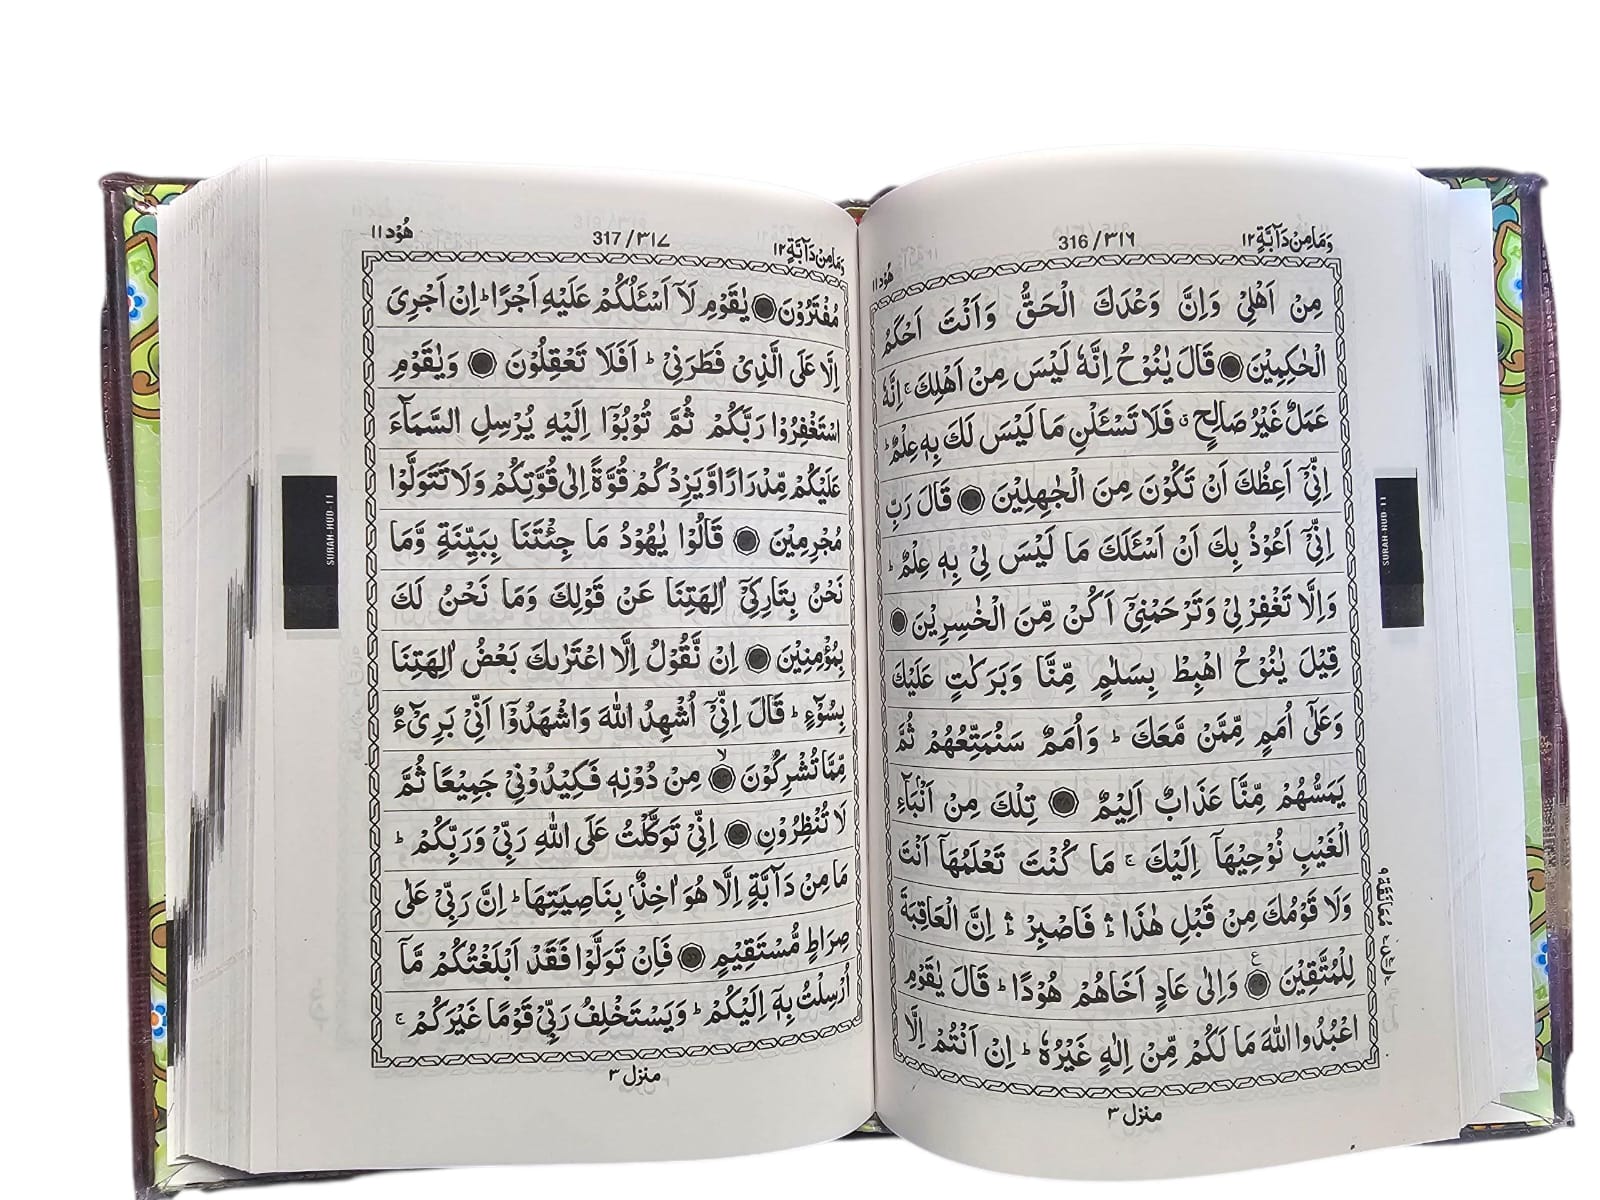 وَمَا مِنْ دَآبَّةٍ ١٢
316/٣١٦
هُوْد ١١
مِنْ اَهْلِىْ وَاِنَّ وَعْدَكَ الْحَقُّ وَاَنْتَ اَحْكَمُ
الْحٰكِمِيْنَ قَالَ يٰنُوْحُ اِنَّهٗ لَيْسَ مِنْ اَهْلِكَ ۚ اِنَّهٗ
عَمَلٌ غَيْرُ صَالِحٍ ۖ فَلَا تَسْـَٔلْنِ مَا لَيْسَ لَكَ بِهٖ عِلْمٌ ؕ
اِنِّىْۤ اَعِظُكَ اَنْ تَكُوْنَ مِنَ الْجٰهِلِيْنَ قَالَ رَبِّ
اِنِّىْۤ اَعُوْذُ بِكَ اَنْ اَسْـَٔلَكَ مَا لَيْسَ لِىْ بِهٖ عِلْمٌ ؕ
وَاِلَّا تَغْفِرْ لِىْ وَتَرْحَمْنِىْۤ اَكُنْ مِّنَ الْخٰسِرِيْنَ
قِيْلَ يٰنُوْحُ اهْبِطْ بِسَلٰمٍ مِّنَّا وَبَرَكٰتٍ عَلَيْكَ
وَعَلٰٓى اُمَمٍ مِّمَّنْ مَّعَكَ ؕ وَاُمَمٌ سَنُمَتِّعُهُمْ ثُمَّ
يَمَسُّهُمْ مِّنَّا عَذَابٌ اَلِيْمٌ تِلْكَ مِنْ اَنْۢبَآءِ
الْغَيْبِ نُوْحِيْهَاۤ اِلَيْكَ ۚ مَا كُنْتَ تَعْلَمُهَاۤ اَنْتَ
وَلَا قَوْمُكَ مِنْ قَبْلِ هٰذَا ۛؕ فَاصْبِرْ ۛؕ اِنَّ الْعَاقِبَةَ
لِلْمُتَّقِيْنَ ع وَاِلٰى عَادٍ اَخَاهُمْ هُوْدًا ؕ قَالَ يٰقَوْمِ
اعْبُدُوا اللّٰهَ مَا لَكُمْ مِّنْ اِلٰهٍ غَيْرُهٗ ؕ اِنْ اَنْتُمْ اِلَّا
منزل ٣
SURAH-HUD-11
وَمَا مِنْ دَآبَّةٍ ١٢
317/٣١٧
هُوْد ١١
مُفْتَرُوْنَ يٰقَوْمِ لَاۤ اَسْـَٔلُكُمْ عَلَيْهِ اَجْرًا ؕ اِنْ اَجْرِىَ
اِلَّا عَلَى الَّذِىْ فَطَرَنِىْ ؕ اَفَلَا تَعْقِلُوْنَ وَيٰقَوْمِ
اسْتَغْفِرُوْا رَبَّكُمْ ثُمَّ تُوْبُوْۤا اِلَيْهِ يُرْسِلِ السَّمَآءَ
عَلَيْكُمْ مِّدْرَارًا وَّيَزِدْكُمْ قُوَّةً اِلٰى قُوَّتِكُمْ وَلَا تَتَوَلَّوْا
مُجْرِمِيْنَ قَالُوْا يٰهُوْدُ مَا جِئْتَنَا بِبَيِّنَةٍ وَّمَا
نَحْنُ بِتَارِكِىْۤ اٰلِهَتِنَا عَنْ قَوْلِكَ وَمَا نَحْنُ لَكَ
بِمُؤْمِنِيْنَ اِنْ نَّقُوْلُ اِلَّا اعْتَرٰىكَ بَعْضُ اٰلِهَتِنَا
بِسُوْٓءٍ ؕ قَالَ اِنِّىْۤ اُشْهِدُ اللّٰهَ وَاشْهَدُوْۤا اَنِّىْ بَرِىْٓءٌ
مِّمَّا تُشْرِكُوْنَ ۙ مِنْ دُوْنِهٖ فَكِيْدُوْنِىْ جَمِيْعًا ثُمَّ
لَا تُنْظِرُوْنِ اِنِّىْ تَوَكَّلْتُ عَلَى اللّٰهِ رَبِّىْ وَرَبِّكُمْ ؕ
مَا مِنْ دَآبَّةٍ اِلَّا هُوَ اٰخِذٌۢ بِنَاصِيَتِهَا ؕ اِنَّ رَبِّىْ عَلٰى
صِرَاطٍ مُّسْتَقِيْمٍ فَاِنْ تَوَلَّوْا فَقَدْ اَبْلَغْتُكُمْ مَّاۤ
اُرْسِلْتُ بِهٖۤ اِلَيْكُمْ ؕ وَيَسْتَخْلِفُ رَبِّىْ قَوْمًا غَيْرَكُمْ ۚ
منزل ٣
SURAH-HUD-11